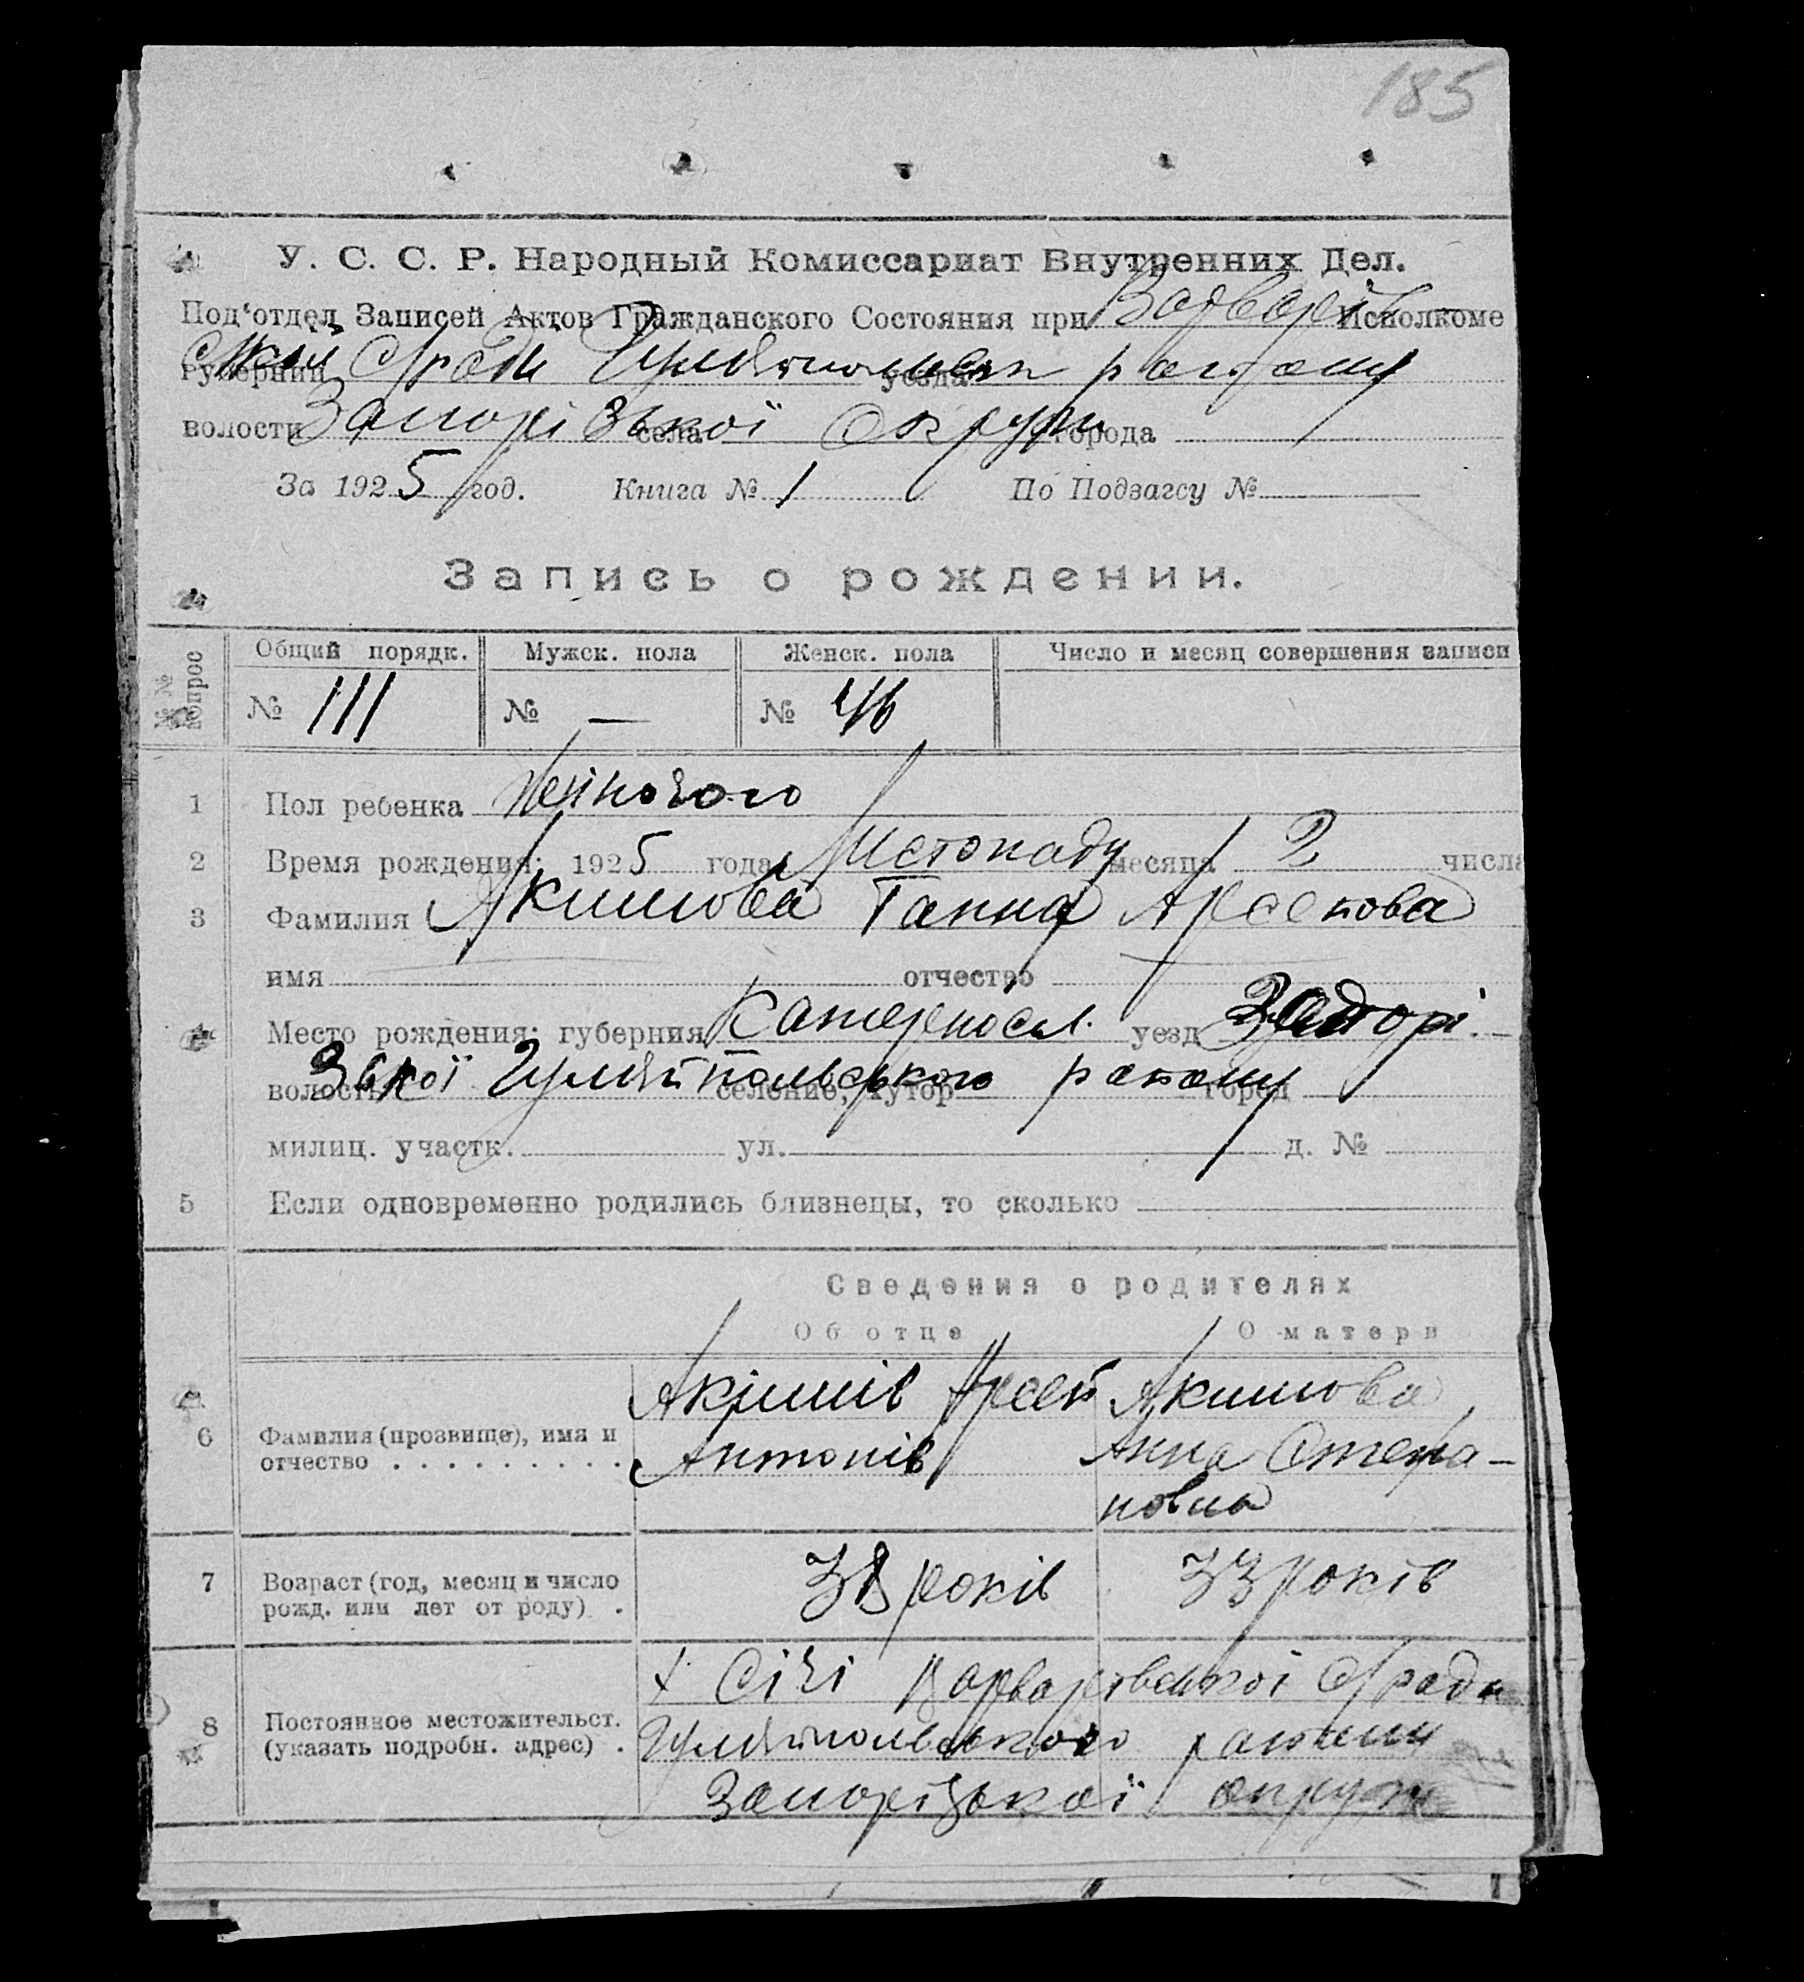 185
У. С. С. Р. Народный Комиссариат Внутренних Дел.
Под‘отдел Записей Актов Гражданского Состояния при Варварів- Исполкоме
ській с/раді Гуляйпольськ району
губернии уезда
волости Запорізької села Округи города
За 1925 год. Книга № 1 По Подзагсу №
Запись о рождении.
№№ вопрос Общий порядк. Мужск. пола Женск. пола Число и месяц совершения записи
№ 111 № — № 46
1 Пол ребенка Жіночого
2 Время рождения: 1925 года Листопаду месяца 2 числа
3 Фамилия Акимова Ганна Арсенова
имя отчество
Место рождения: губерния Катериносл. уезд Запорі-
зької Гуляйпольського району
волость селение, хутор город
милиц. участк. ул. д. №
5 Если одновременно родились близнецы, то сколько
Сведения о родителях
Об отце О матери
Акімів Арсен Акимова
6 Фамилия (прозвище), имя и
отчество Антонів Анна Степа-
новна
7 Возраст (год, месяц и число
рожд. или лет от роду) 38 років 33 років
х Січі Варварівської с/ради
8 Постоянное местожительст.
(указать подробн. адрес) Гуляйпольського району
Запорізької округи